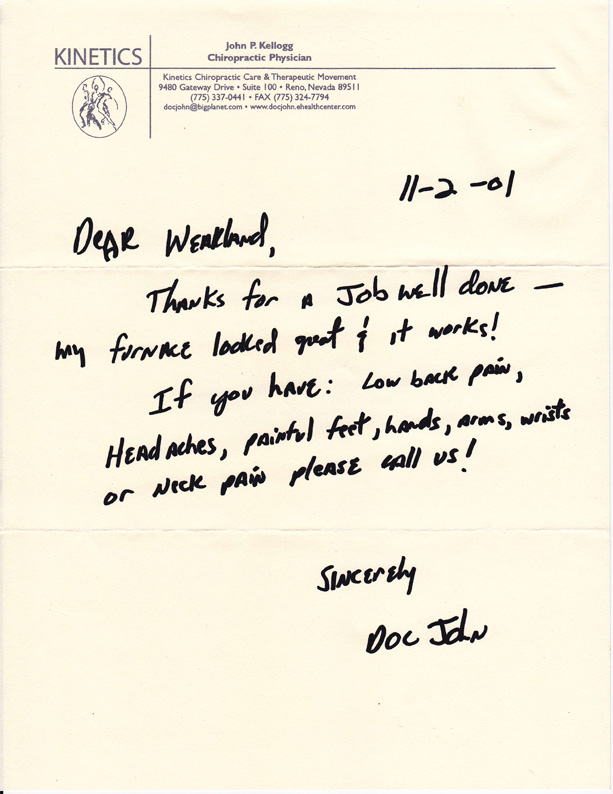 KINETICS
John P. Kellogg
Chiropractic Physician
Kinetics Chiropractic Care & Therapeutic Movement
9480 Gateway Drive • Suite 100 • Reno, Nevada 89511
(775) 337-0441 • FAX (775) 324-7794
docjohn@bigplanet.com • www.docjohn.ehealthcenter.com
11-2-01
Dear Weakland,
Thanks for a Job well done —
my furnace looked great & it works!
If you have: Low back pain,
Headaches, painful feet, hands, arms, wrists
or neck pain please call us!
Sincerely
Doc John